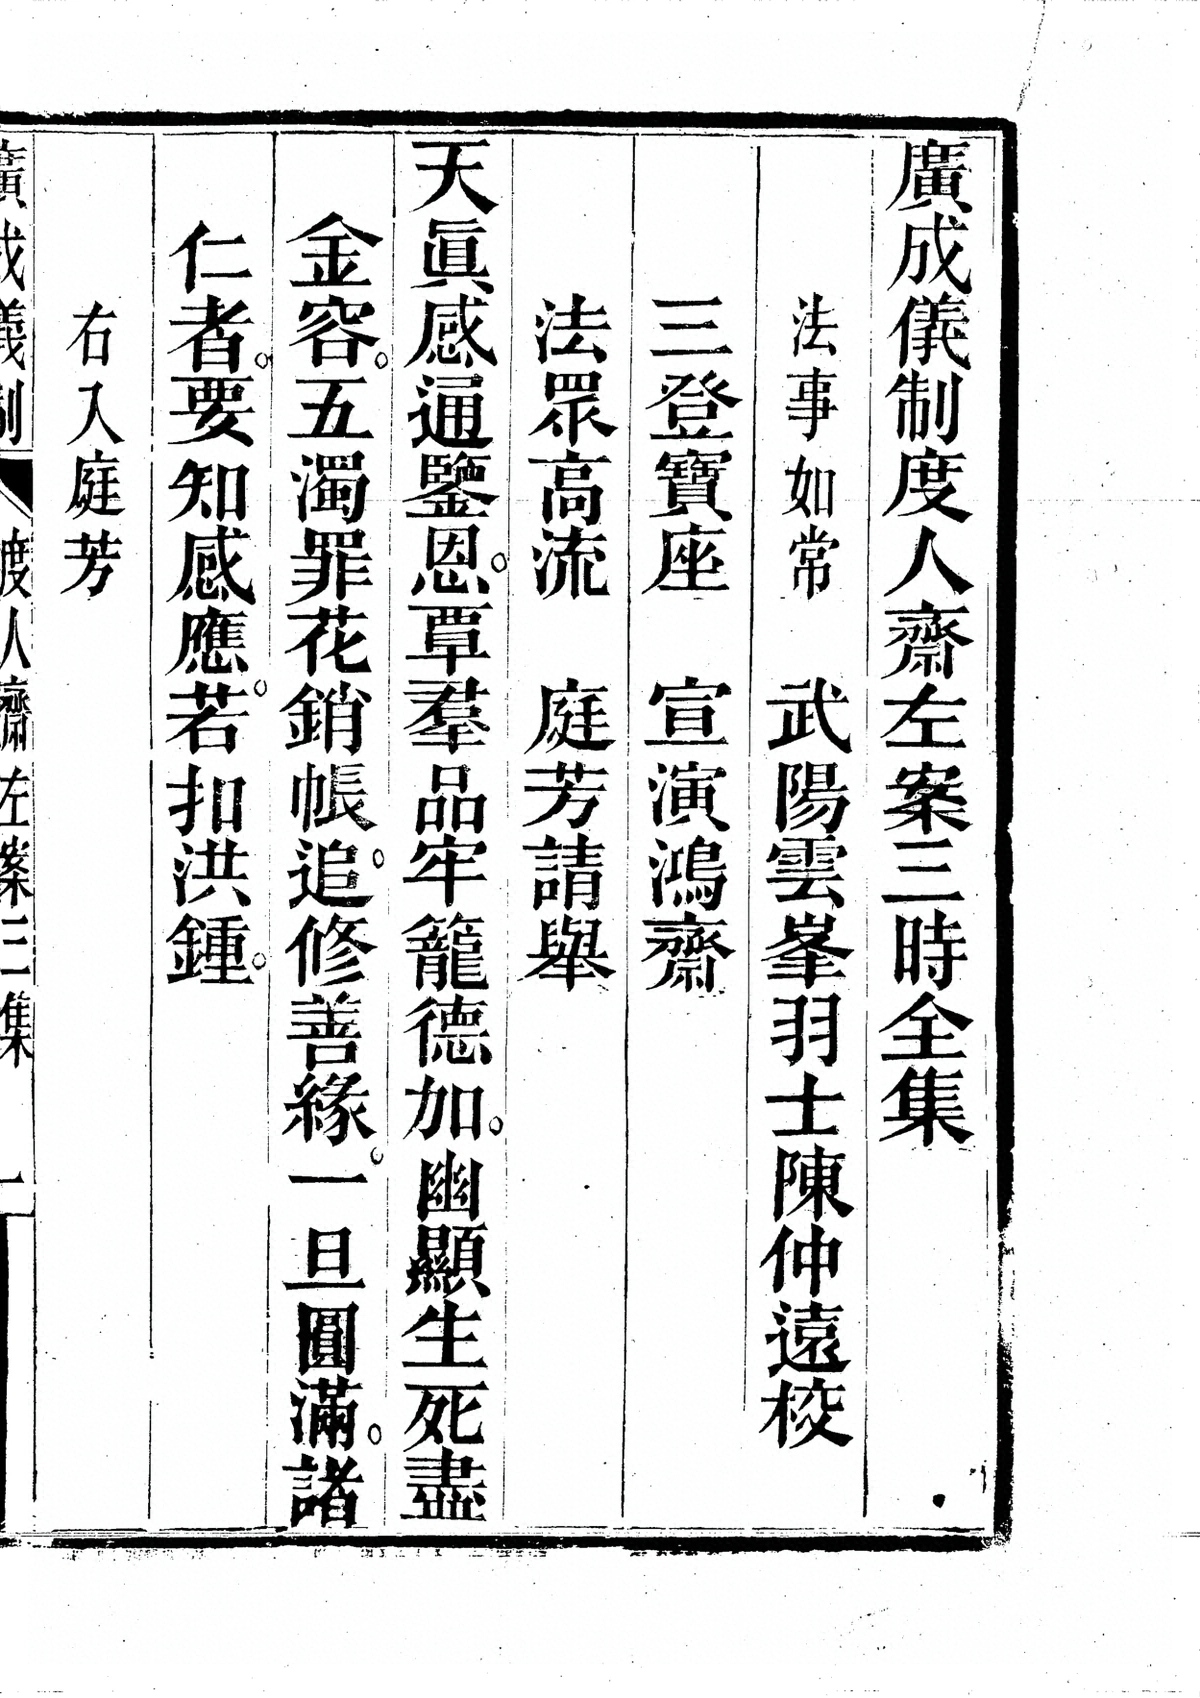 廣成儀制度人齋左案三時全集
法事如常　武陽雲峯羽士陳仲遠校
三登寶座　宣演鴻齋
法眾高流　庭芳請舉
天眞感通鑒恩。覃羣品牢籠德加。幽顯生死盡
金容。五濁罪花銷帳。追修善緣。一旦圓滿。諸
仁者。要知感應。若扣洪鍾。
右入庭芳
廣成儀制　度人齋左案三集　一